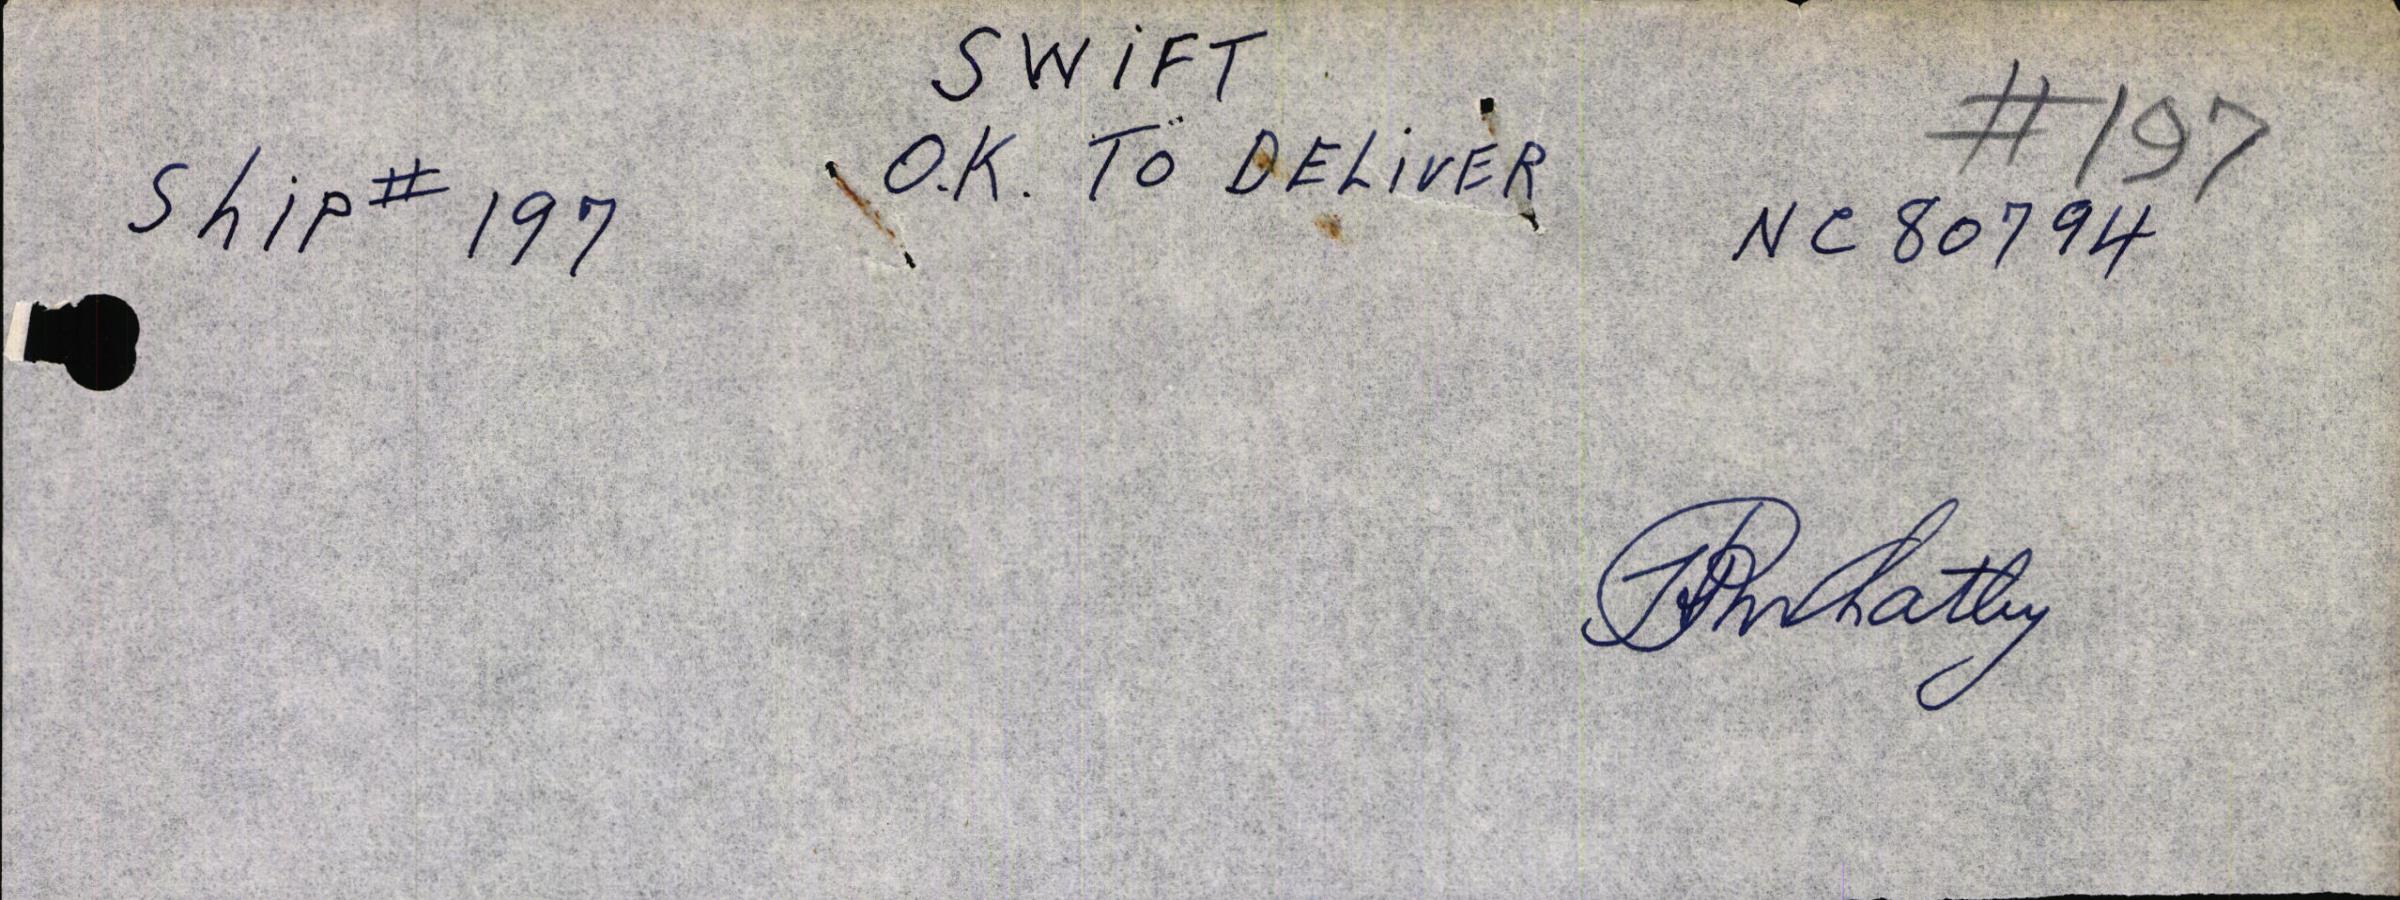 SWiFT
#197
O.K. TO DELiVER
Ship # 197
NC 80794